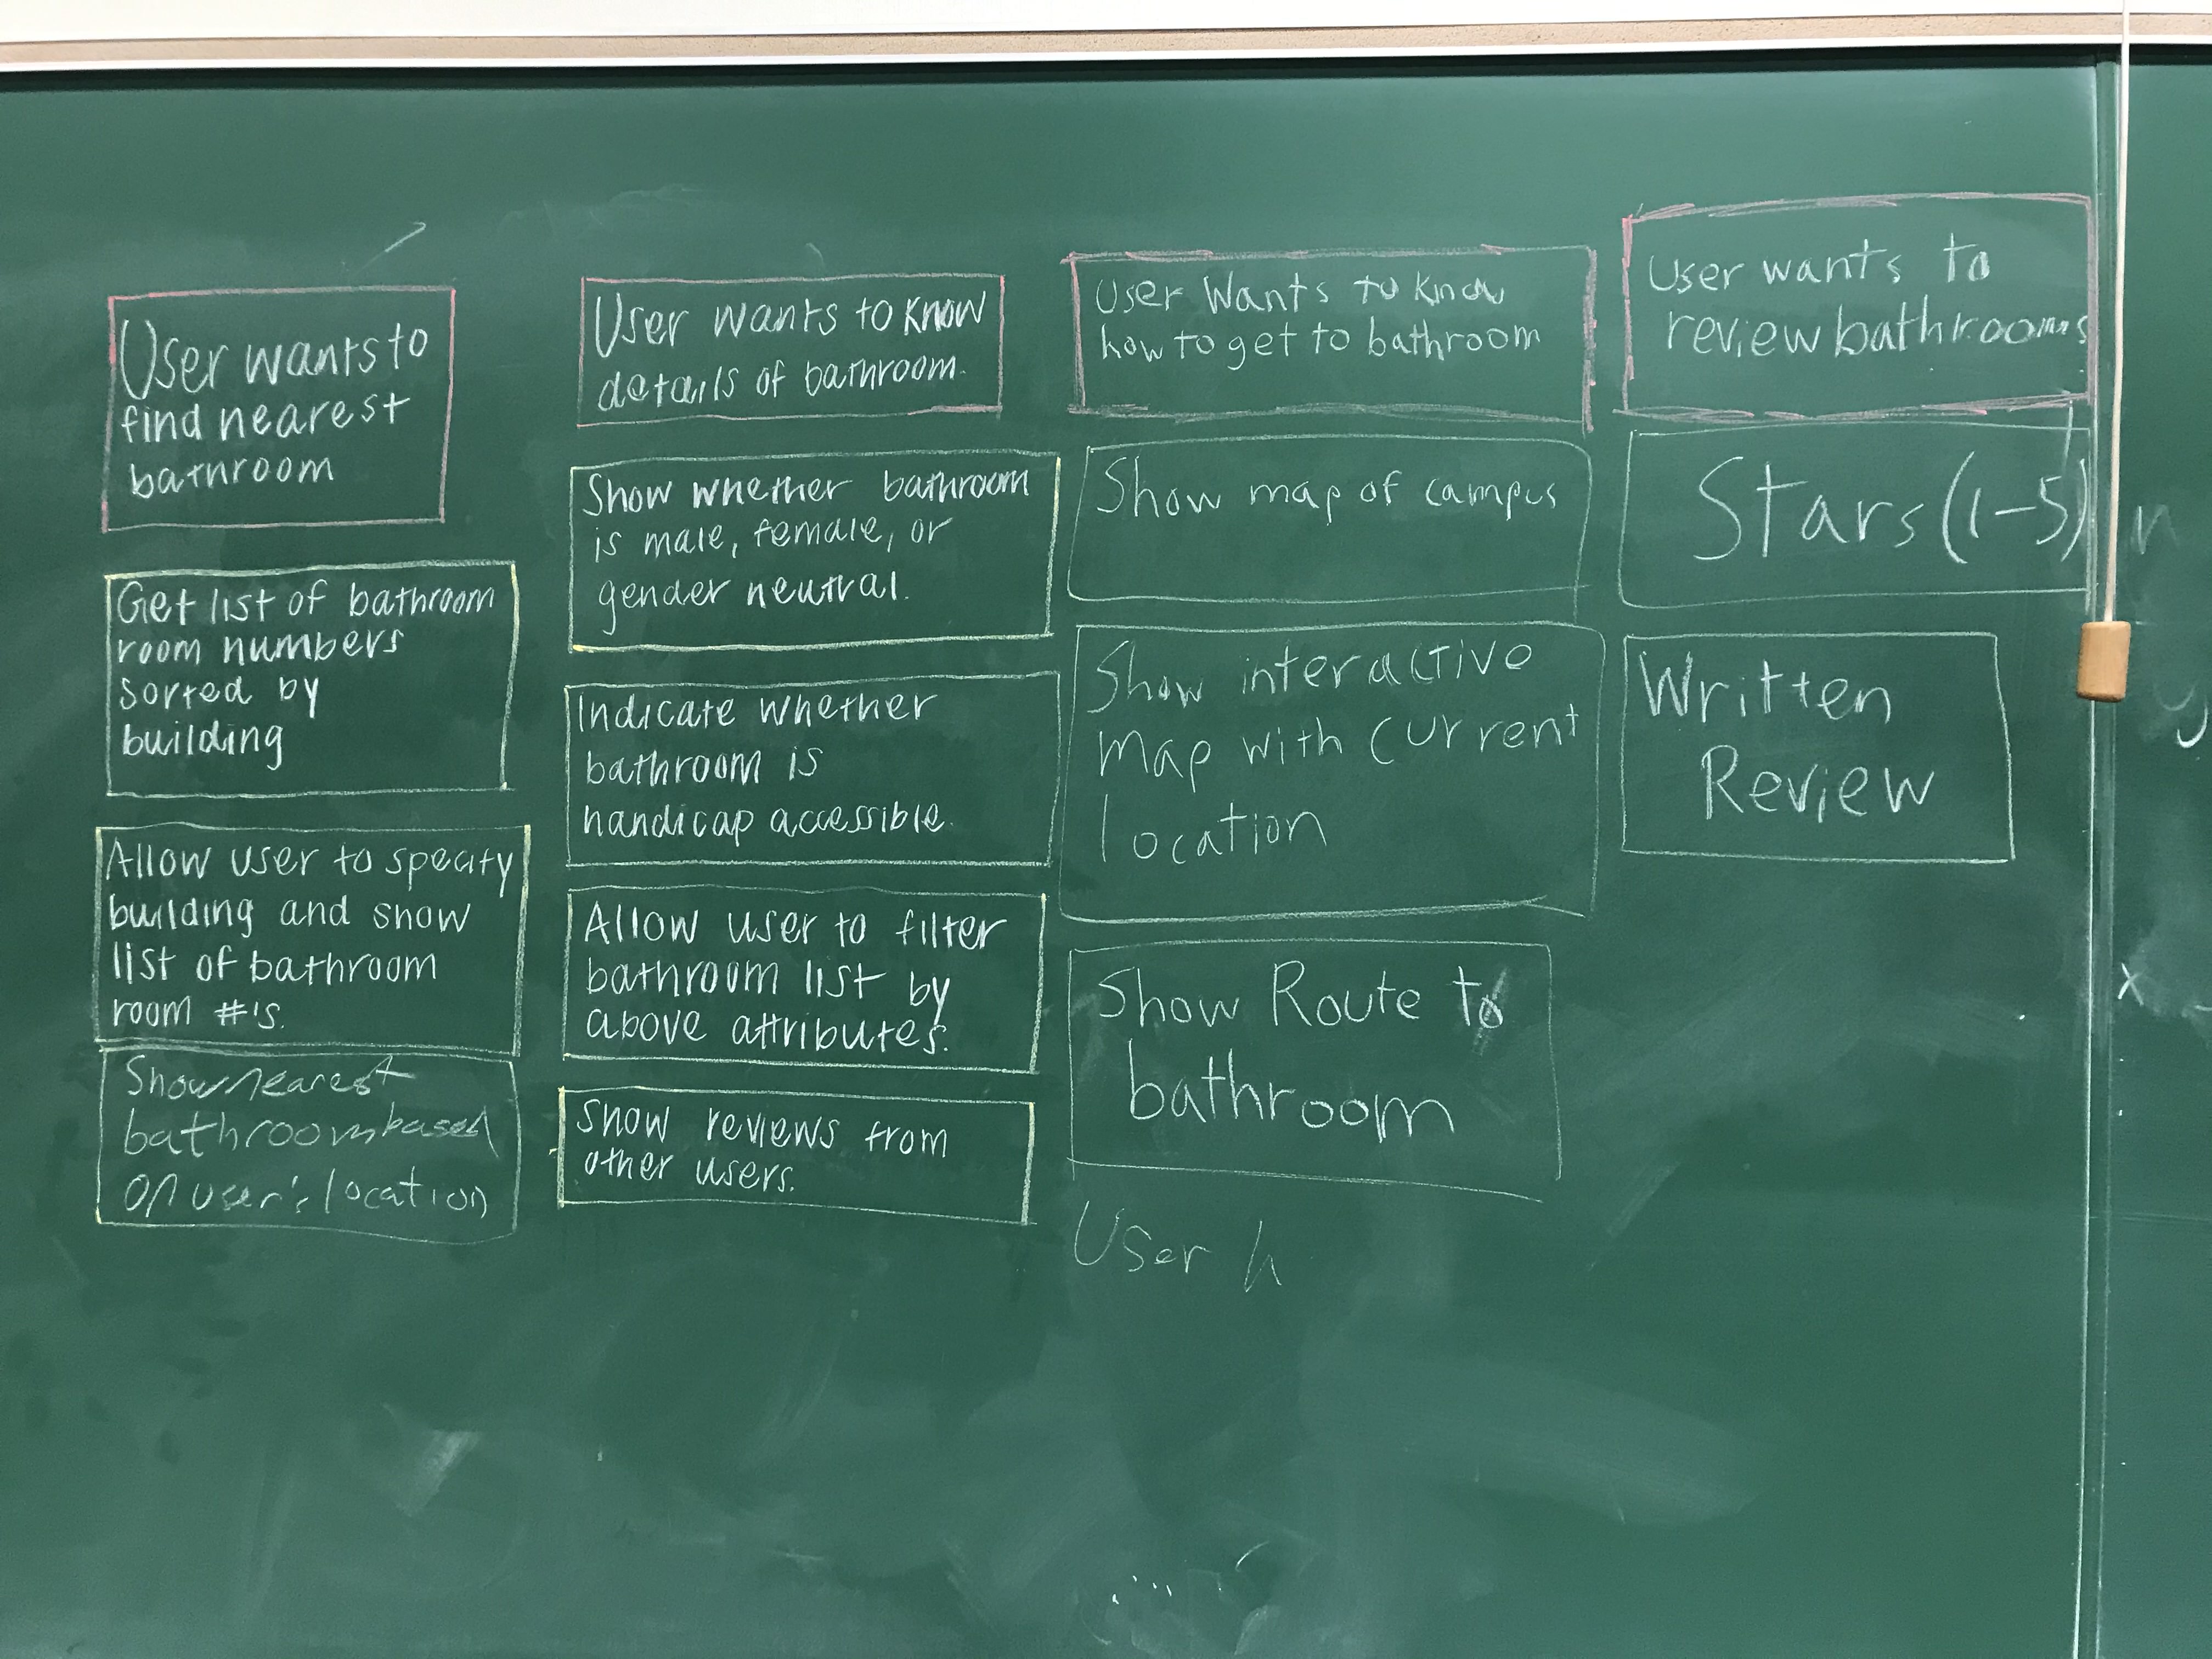 User wants to
find nearest
bathroom
Get list of bathroom
room numbers
sorted by
building
Allow user to specify
building and show
list of bathroom
room #'s.
Show nearest
bathroom based
on user's location
User wants to know
details of bathroom.
Show whether bathroom
is male, female, or
gender neutral.
Indicate whether
bathroom is
handicap accessible.
Allow user to filter
bathroom list by
above attributes.
Show reviews from
other users.
User Wants to know
how to get to bathroom
Show map of campus
Show interactive
map with current
location
Show Route to
bathroom
User h
User wants to
review bathrooms
Stars (1-5)
Written
Review
n
y
x